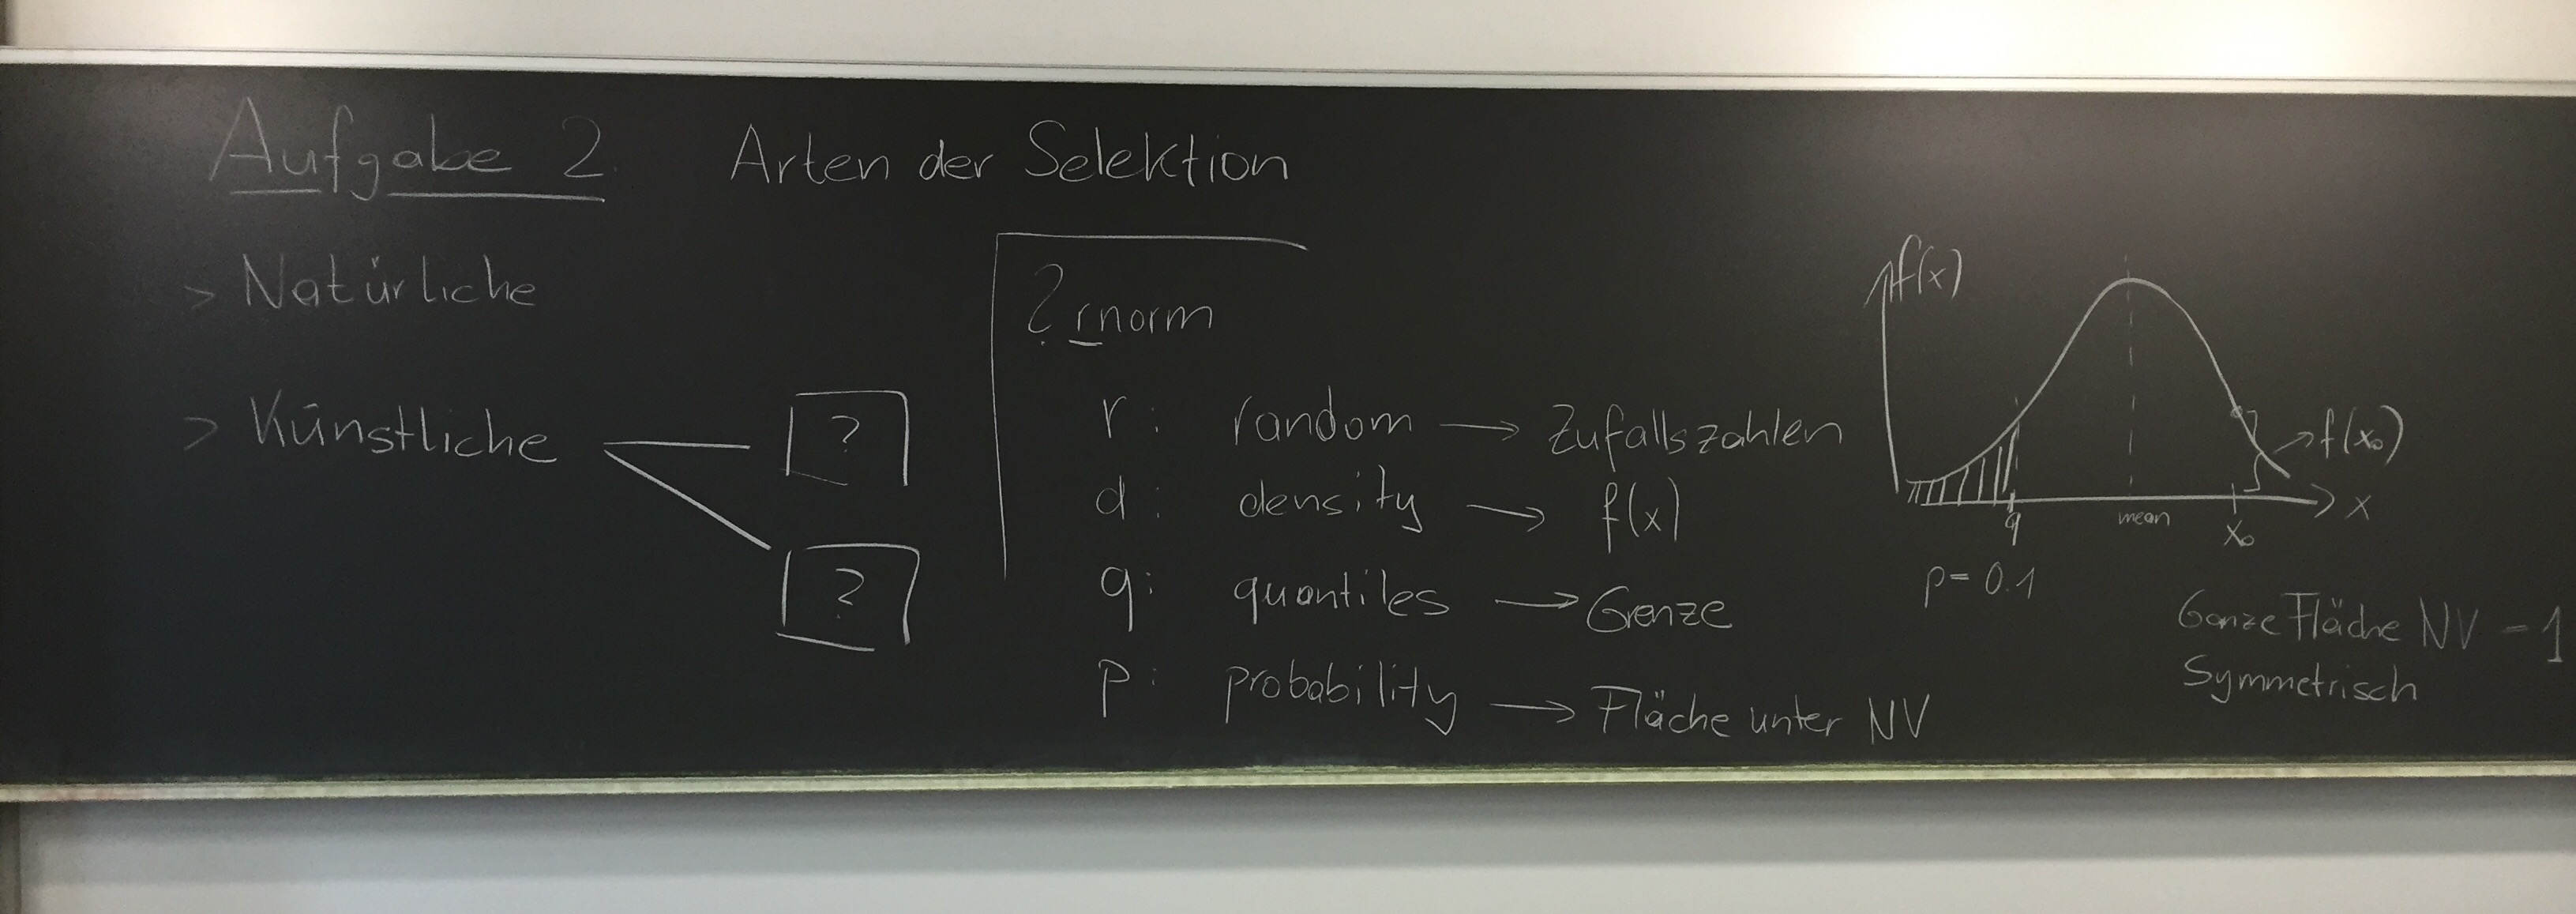 Aufgabe 2 Arten der Selektion
> Natürliche
> Künstliche
?
?
?rnorm
r: random → Zufallszahlen
d: density → f(x)
q: quantiles → Grenze
p: probability → Fläche unter NV
f(x)
f(x₀)
q mean x₀ x
p = 0.1
Ganze Fläche NV = 1
Symmetrisch